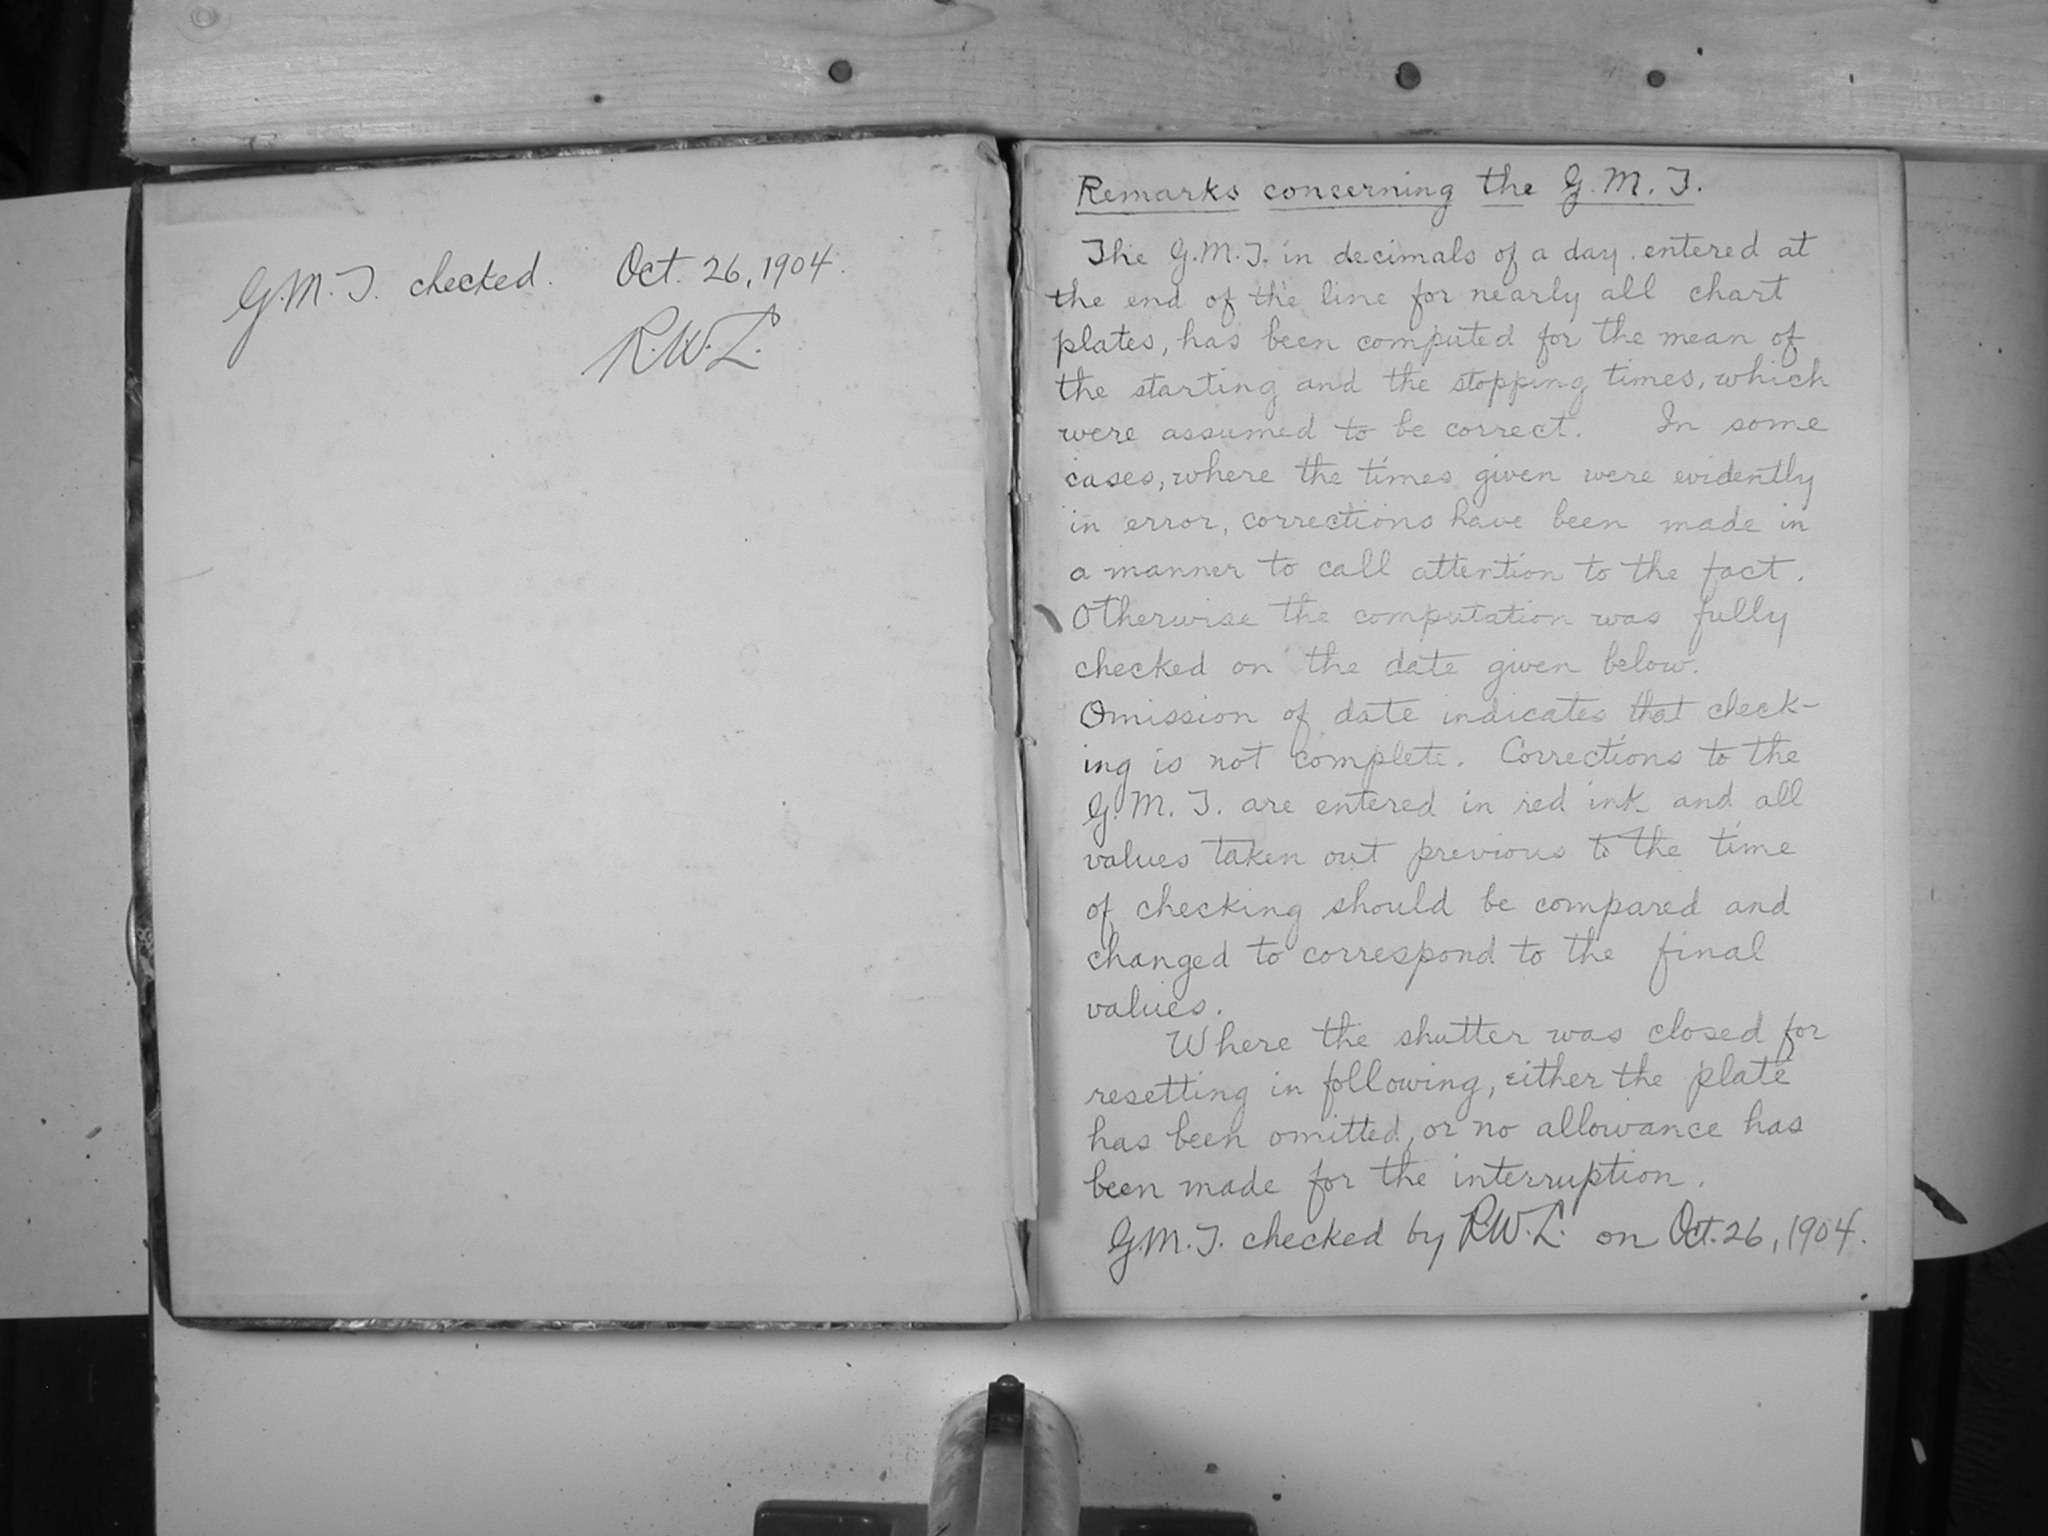 G.M.T. checked. Oct. 26, 1904.
R.W.L.
Remarks concerning the G.M.T.
The G.M.T. in decimals of a day entered at
the end of the line for nearly all chart
plates, has been computed for the mean of
the starting and the stopping times, which
were assumed to be correct. In some
cases, where the times given were evidently
in error, corrections have been made in
a manner to call attention to the fact.
Otherwise the computation was fully
checked on the date given below.
Omission of date indicates that check-
ing is not complete. Corrections to the
G.M.T. are entered in red ink and all
values taken out previous to the time
of checking should be compared and
changed to correspond to the final
values.
Where the shutter was closed for
resetting in following, either the plate
has been omitted, or no allowance has
been made for the interruption.
G.M.T. checked by R.W.L. on Oct. 26, 1904.